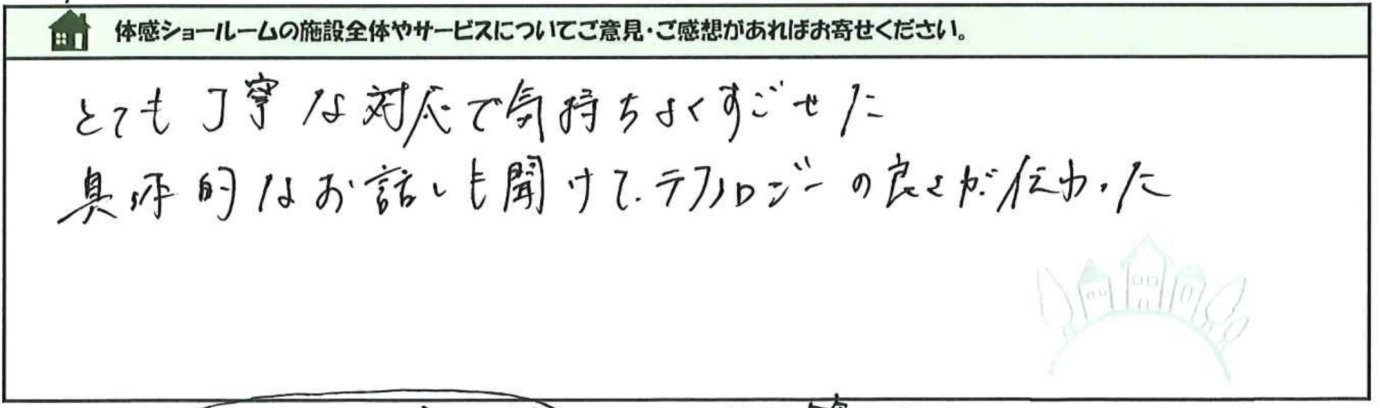 体感ショールームの施設全体やサービスについてご意見・ご感想があればお寄せください。
とても丁寧な対応で気持ちよくすごせた
具体的なお話しも聞けて、テクノロジーの良さが伝わった